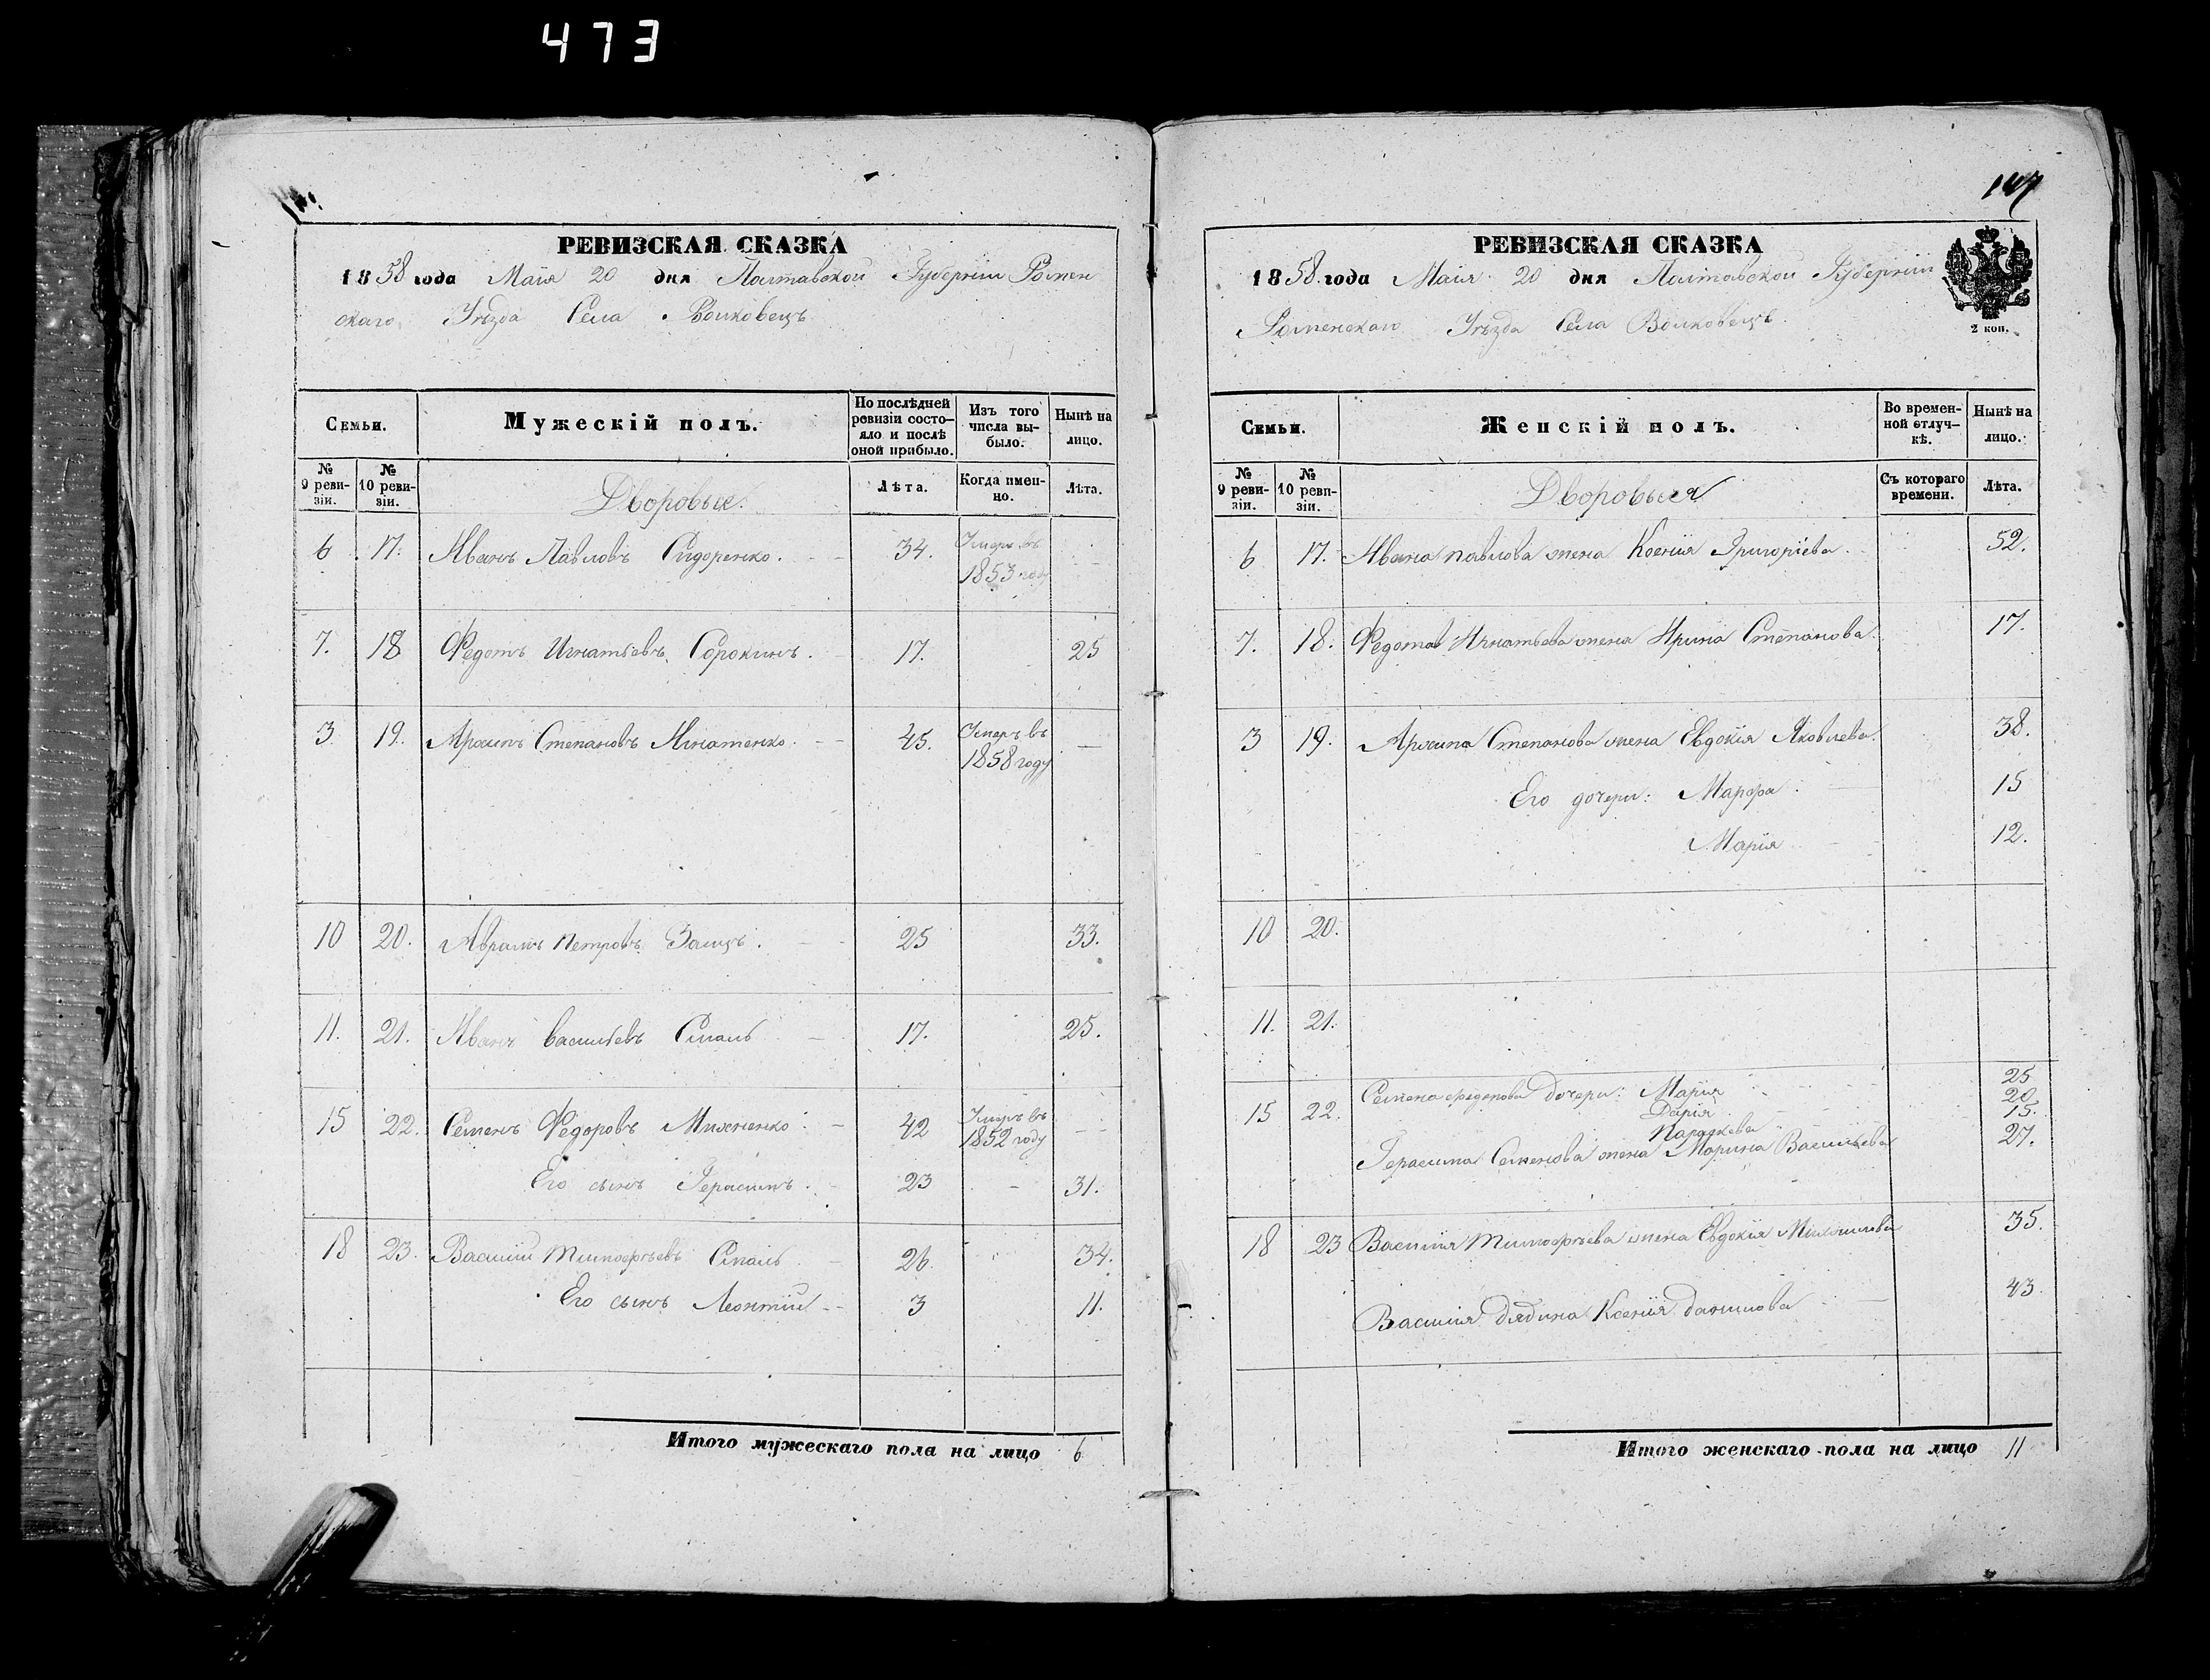 473
РЕВИЗСКАЯ СКАЗКА
1858 года Маія 20 дня Полтавской Губерніи Ромен
скаго Уѣзда Села Волковецъ
Семьи.
Мужескій полъ.
По послѣдней ревизіи состо-яло и послѣ оной прибыло.
Изъ того числа вы-было.
Нынѣ на лицо.
№ 9 реви-зіи.
№ 10 реви-зіи.
Дворовые.
Лѣта.
Когда имен-но.
Лѣта.
6 17. Иванъ Павловъ Сидоренко. 34. Умеръ въ 1853 году
7. 18 Федотъ Игнатьевъ Сорокинъ. 17. 25
3 19. Архипъ Степановъ Игнатенко. 45. Умеръ въ 1858 году
10 20. Аврамъ Петровъ Заицъ. 25 33.
11. 21. Иванъ Васильевъ 17. 25.
15 22. Семенъ Федоровъ 42 Умеръ въ 1852 году
Его сынъ Герасимъ. 23 31.
18 23. Василій Тимофѣевъ 26. 34.
Его сынъ Леонтій 3 11.
Итого мужескаго пола на лицо 6
147
РЕВИЗСКАЯ СКАЗКА
1858. года Маія 20 дня Полтавской Губерніи
Роменскаго Уѣзда Села Волковецъ.
2 коп.
Семьи.
Женскій полъ.
Во времен-ной отлуч-кѣ.
Нынѣ на лицо.
№ 9 реви-зіи.
№ 10 реви-зіи.
Дворовыя
Съ котораго времени.
Лѣта.
6 17. Ивана Павлова жена Ксенія Григоріева. 52.
7. 18. Федота Игнатьева жена Ирина Степанова. 17.
3 19. Архипа Степанова жена Евдокія Яковлева. 38.
Его дочери: Марфа. 15
Марія 12.
10 20.
11. 21.
15 22. Семена Федорова дочери: Марія 25
Дарія 20
Параскева 15.
Герасима Семенова жена Марина Васильева 27.
18 23 Василія Тимофѣева жена Евдокія Михайлова 35.
Василія дядина Ксенія Данилова 43.
Итого женскаго пола на лицо 11